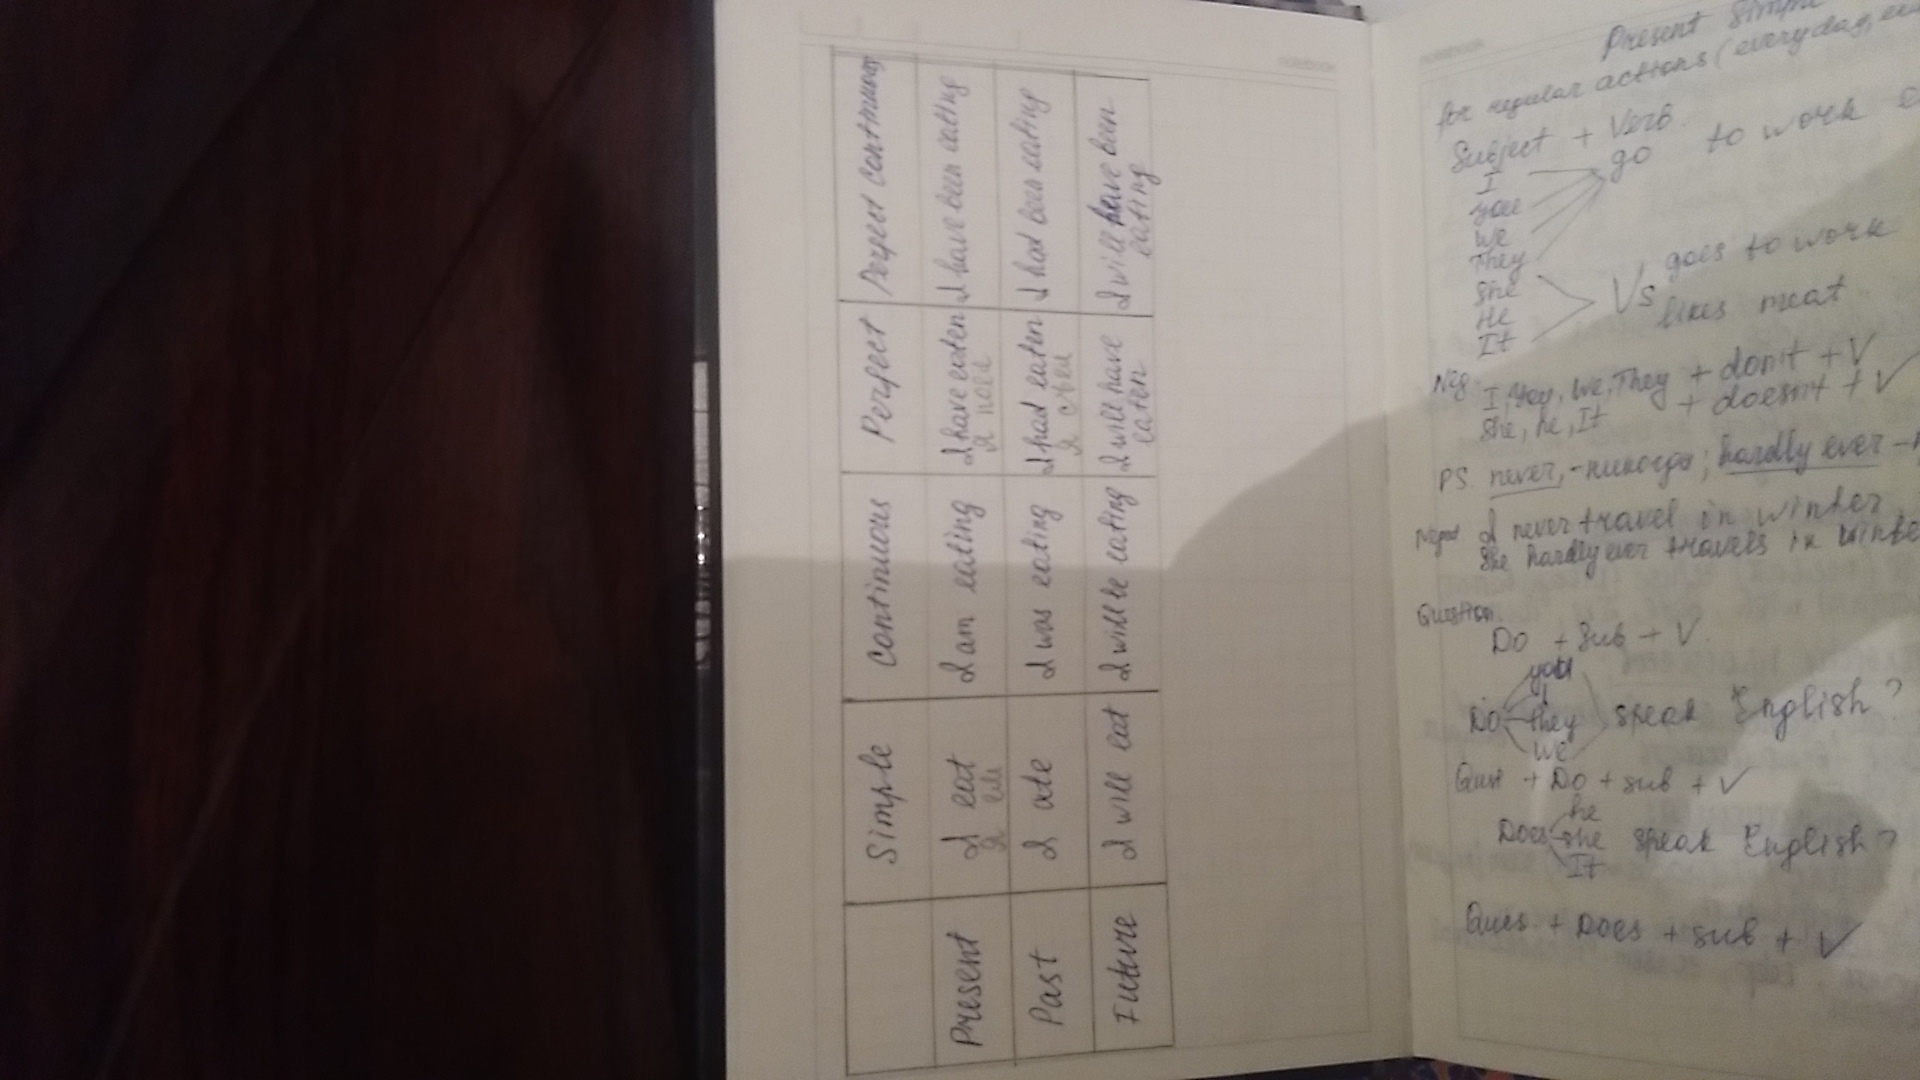 Simple Continuous Perfect Perfect Continuous
Present I eat I am eating I have eaten I have been eating
Past I ate I was eating I had eaten I had been eating
Future I will eat I will be eating I will have eaten I will have been eating
Present Simple
for regular actions (everyday,
Subject + Verb.
I
you
we
They
She
He
It
go to work
Vs goes to work
likes meat
Neg.
I, You, We, They + don't + V
She, he, It + doesn't + V
PS. never, - никогда; hardly ever -
I never travel in winter
She hardly ever travels in winte
Question.
Do + Sub + V.
you
I
Do they speak English?
we
Ques + Do + sub + V
he
Does she speak English?
It
Ques. + Does + sub + V